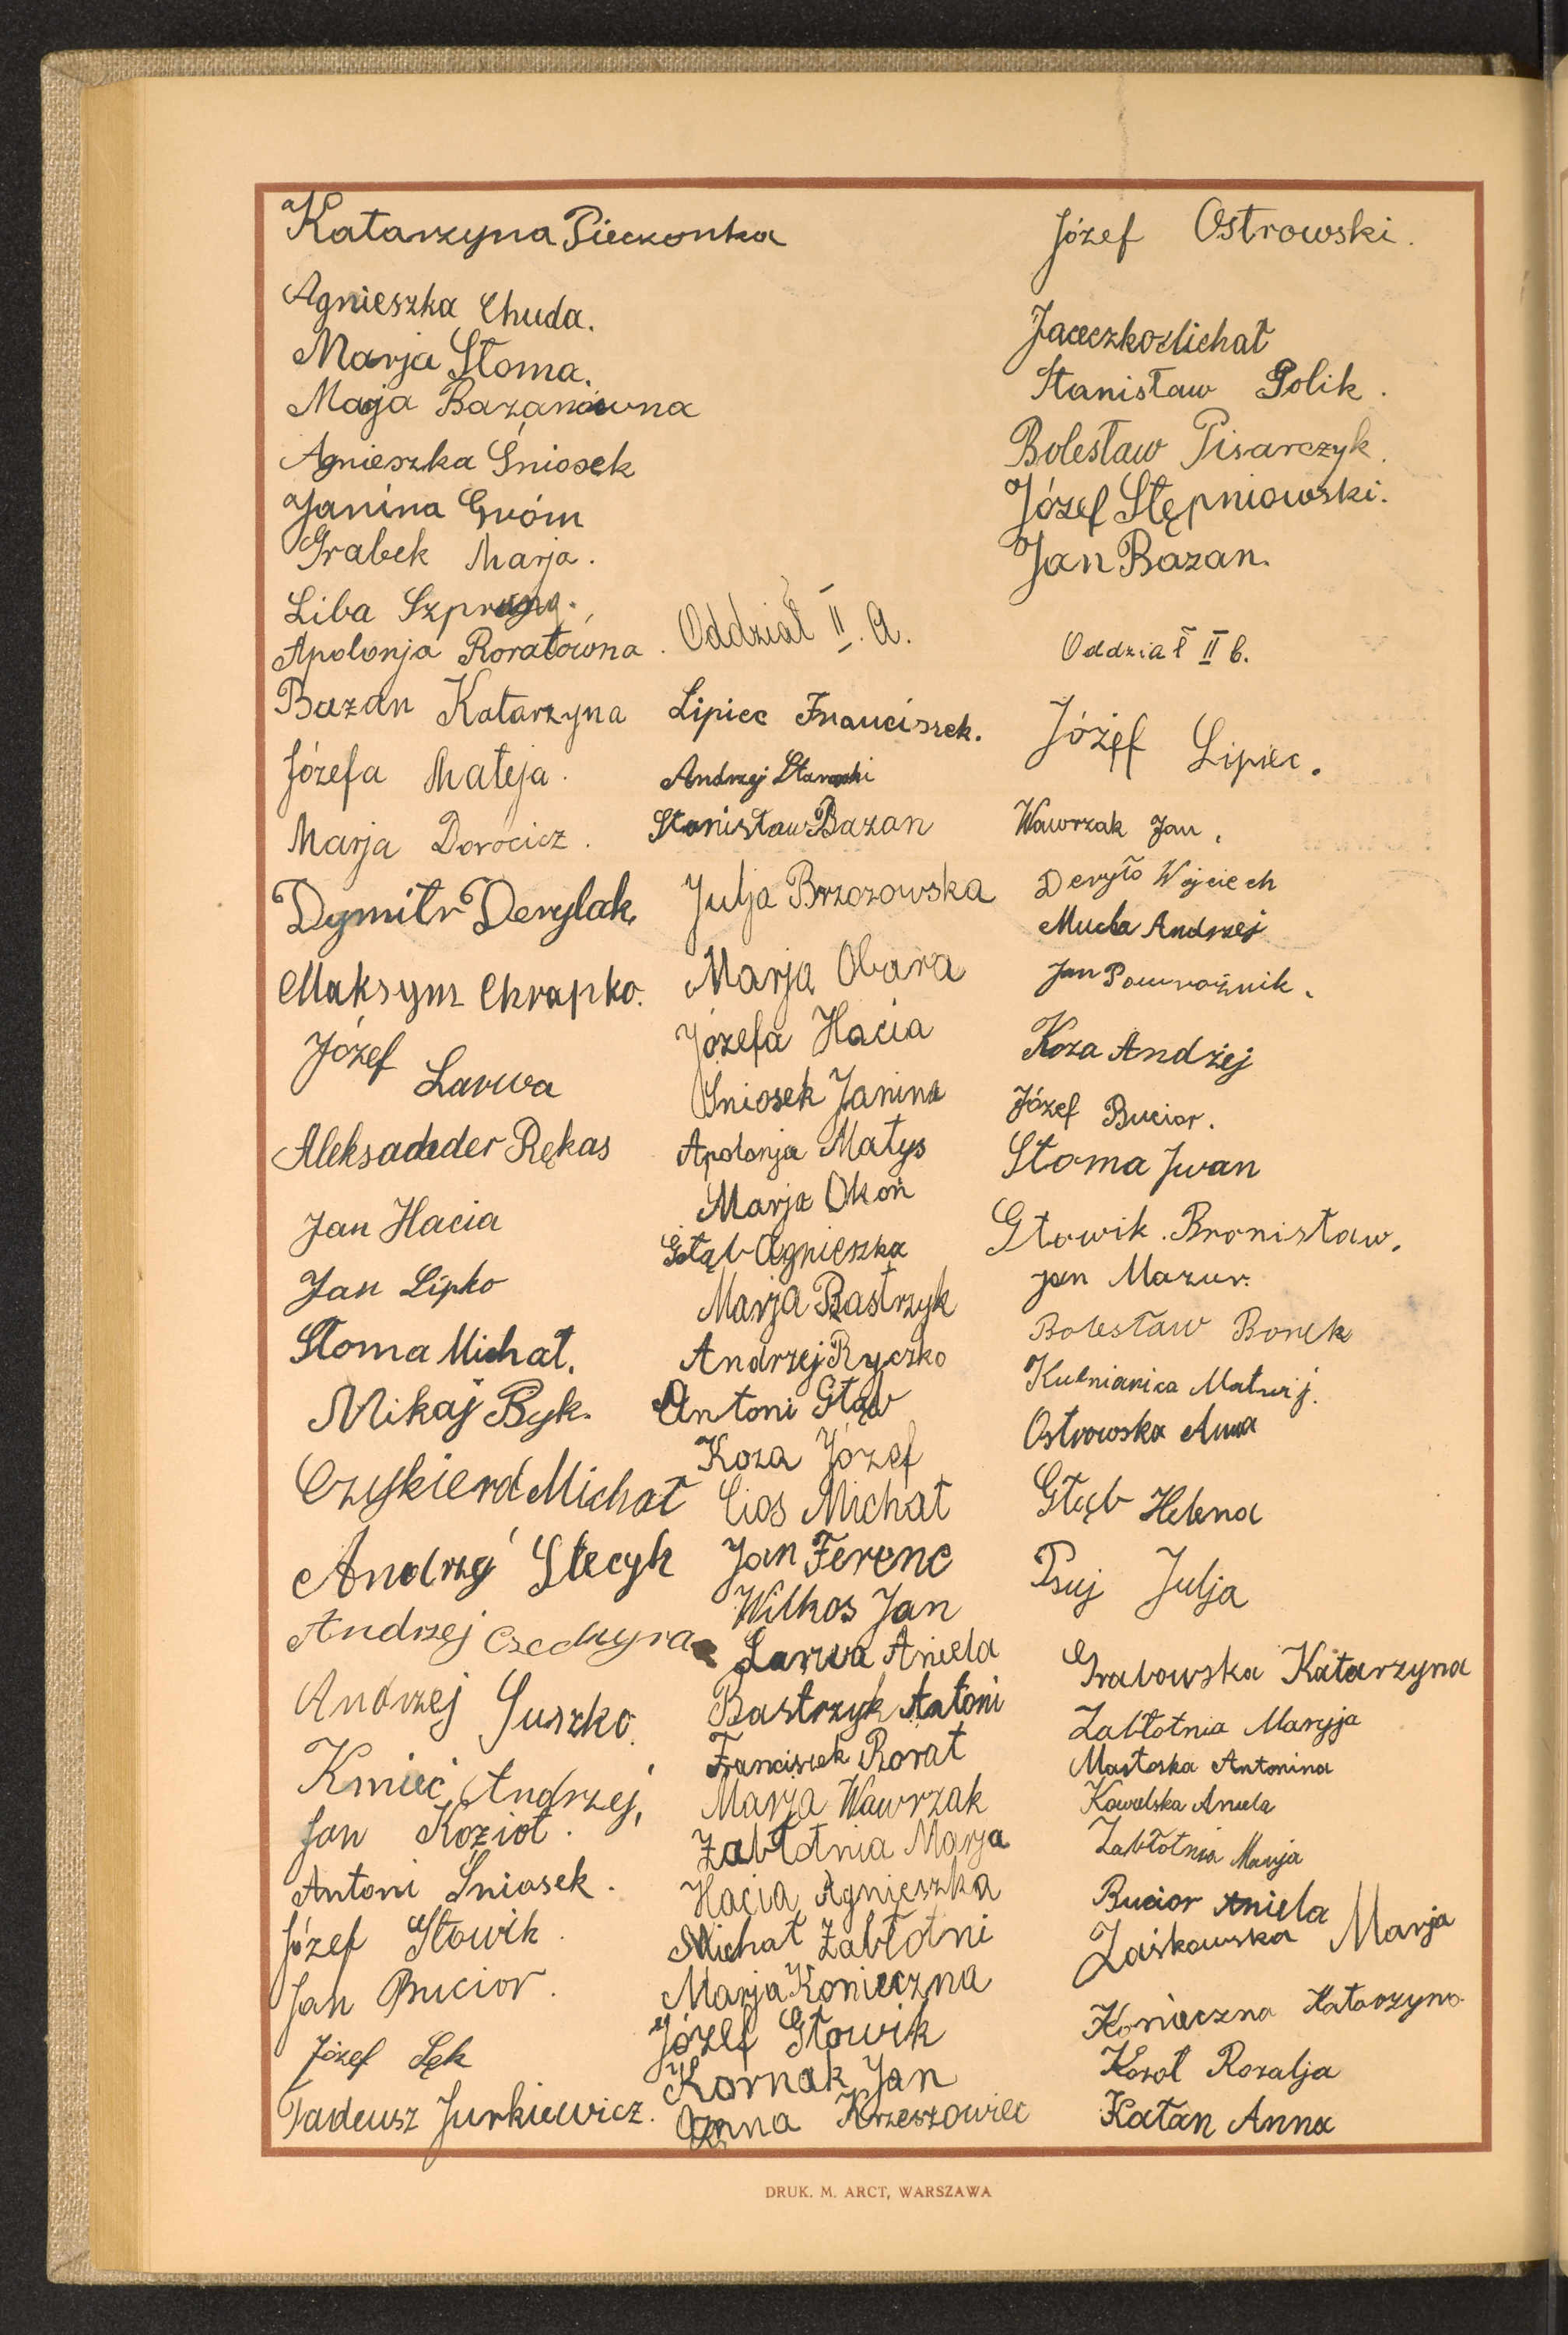 Katarzyna Pieczonka
Agnieszka Chuda.
Marja Słoma.
Marja Bazanówna
Agnieszka Śniosek
Janina Gróm
Grabek Marja.
Liba
Apolonja Roratówna.
Bazan Katarzyna
Józefa Mateja.
Marja Dorocicz.
Dymitr Derylak.
Maksym Chrapko.
Józef Larwa
Aleksadeder Rękas
Jan Hacia
Jan Lipko
Słoma Michał.
Mikaj Byk.
Czyskierd Michał
Andrzej Stecyk
Andrzej Czechyra
Andrzej Suszko.
Kmieć Andrzej,
Jan Kozioł.
Antoni Śniosek.
Józef Głowik.
Jan Bucior.
Józef Lęk
Tadeusz Jurkiewicz.
Oddział II. A.
Lipiec Franciszek.
Andrzej
Stanisław Bazan
Julja Brzozowska
Marja Obara
Józefa Hacia
Śniosek Janina
Apolonja Matys
Marja Okoń
Gołąb Agnieszka
Marja Bastrzyk
Andrzej Ryczko
Antoni Głąb
Koza Józef
Cios Michał
Jan Ferenc
Wilkos Jan
Larwa Aniela
Bastrzyk Antoni
Franciszek Rorat
Marja Wawrzak
Zabłotnia Marja
Hacia Agnieszka
Michał Zabłotni
Marja Konieczna
Józef Głowik
Kornak Jan
Anna Krzeszowiec
Józef Ostrowski.
Jaceczko Michał
Stanisław Polik.
Bolesław Pisarczyk.
Józef Stępniowski.
Jan Bazan.
Oddział II b.
Józef Lipiec.
Wawrzak Jan,
Deryło Wojciech
Mucha Andrzej
Jan Powroźnik.
Koza Andżej
Józef Bucior.
Słoma Iwan
Głowik Bronisław.
jan Mazur.
Bolesław Borek
Kuśniarica Matwij.
Ostrowska Anna
Głąb Helena
Psuj Julja
Grabowska Katarzyna
Zabłotnia Maryja
Mastoska Antonina
Kowalska Aniela
Zabłotnia Marja
Bucior Aniela
Zaśkowska Marja
Konieczna Katarzyna
Kozoł Rozalja
Katan Anna
DRUK. M. ARCT, WARSZAWA